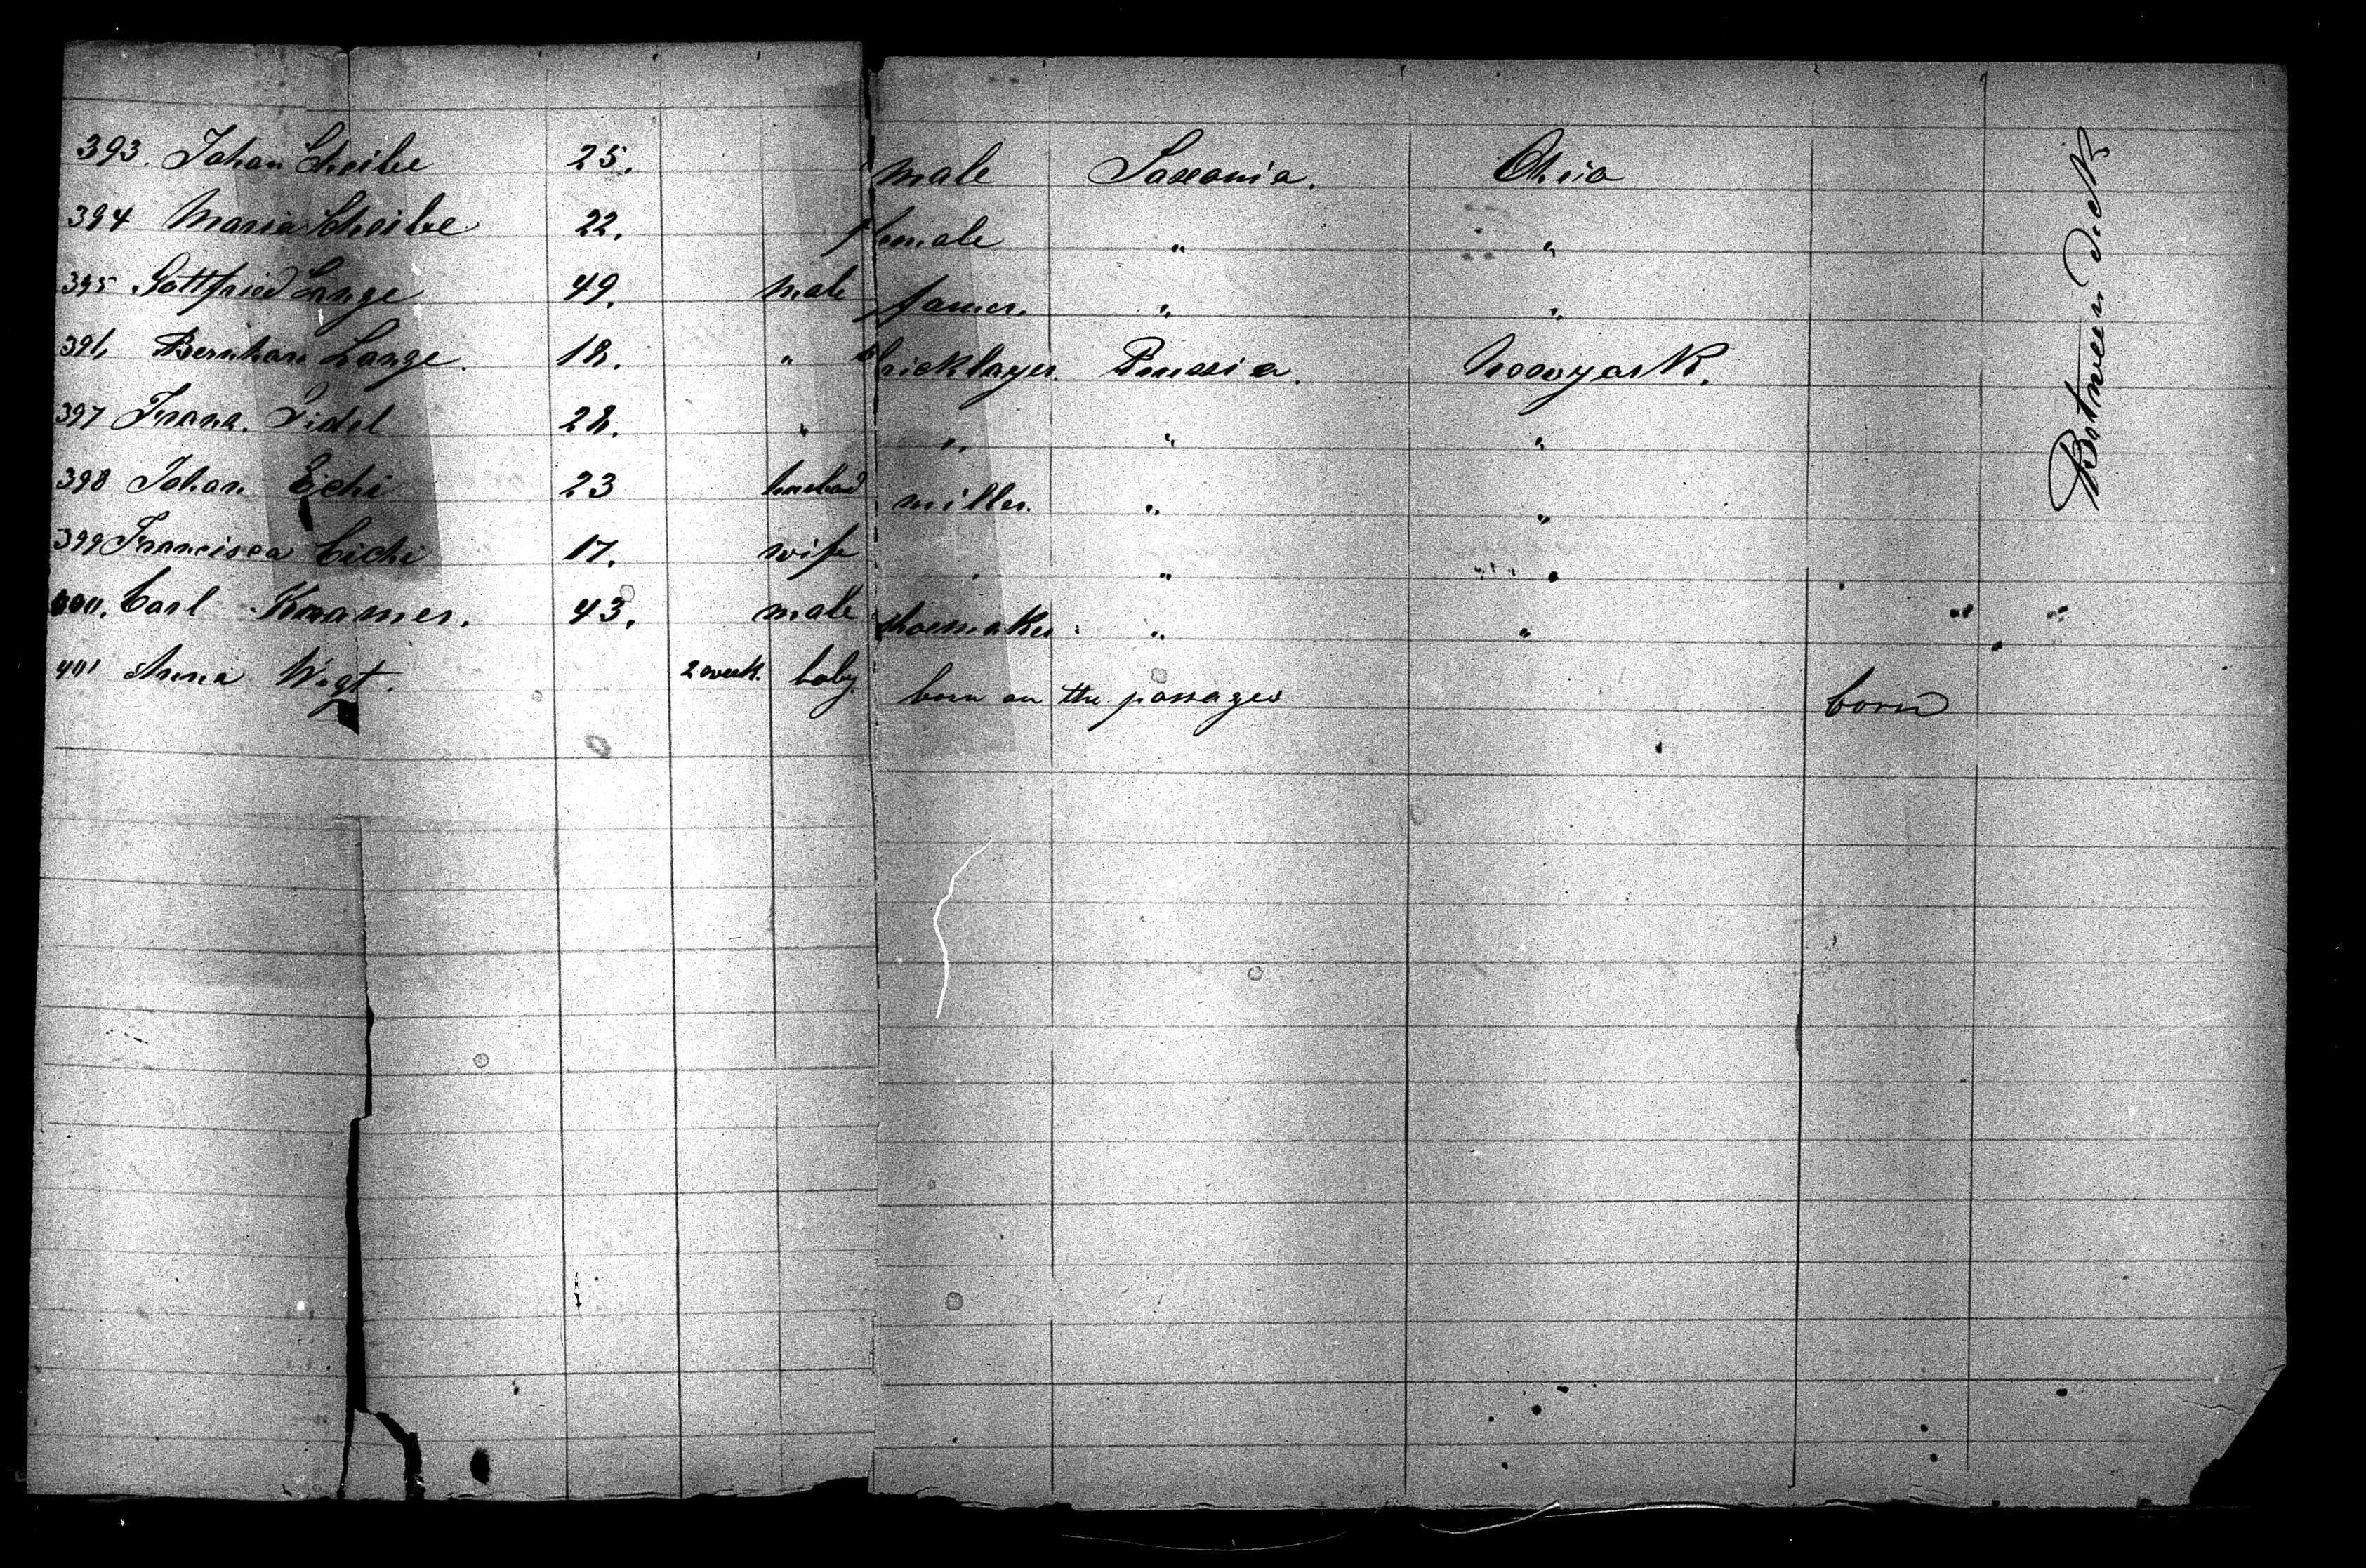 393. Johan Scheibe 25. male Saxonia. Ohio
394 Maria Scheibe 22. female " "
395 Gottfried Lange 49. male famer. " "
396 Bernhan Lange. 18. " bricklayer. Prussia. Newyork.
397 Franz. Sidel 28. " " " "
398 Johan Eichi 23 husband miller. " "
399 Francisca Eichi 17. wife " " "
400. Carl Kramer. 43. male shoemaker " "
401 Anna Wigt. 2 week. baby. born on the passages born
Between Deck